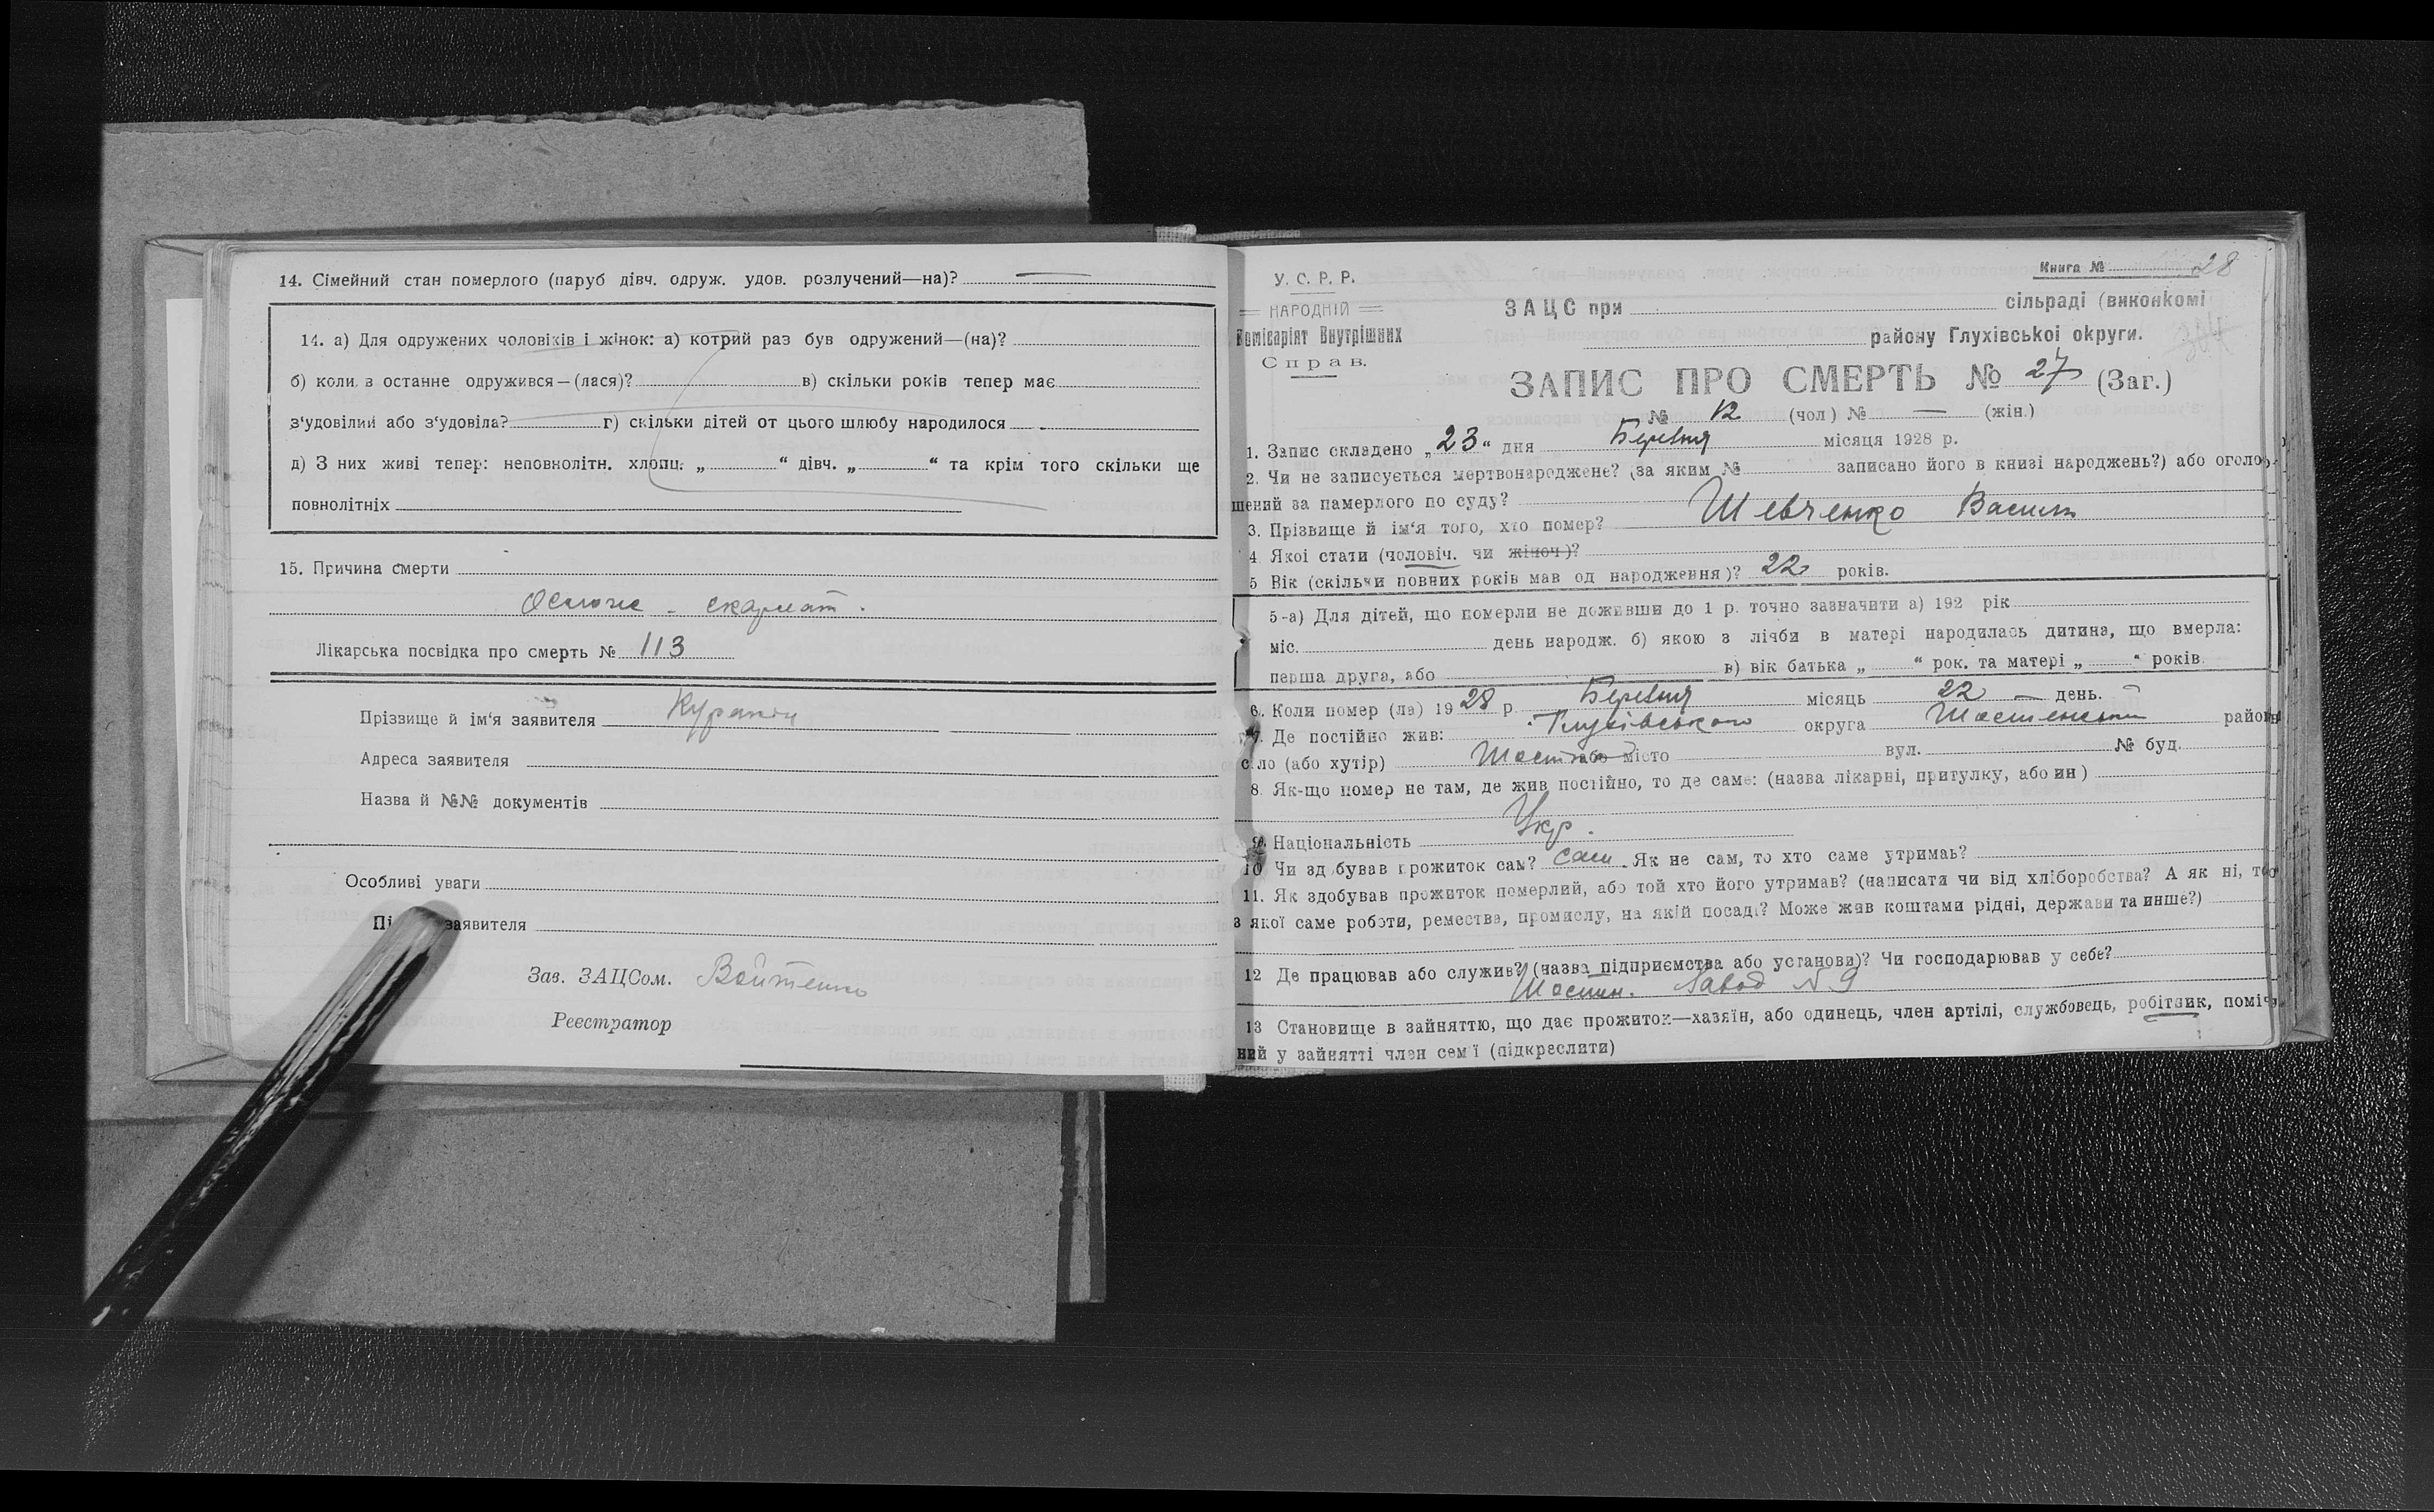 14. Сімейний стан померлого (паруб дівч. одруж. удов. розлучений—на)? —
14. а) Для одружених чоловіків і жінок: а) котрий раз був одружений—(на)?
б) коли в останнє одружився—(лася)? в) скільки років тепер має
з'удовілий або з'удовіла? г) скільки дітей от цього шлюбу народилося
д) З них живі тепер: неповнолітн. хлопц. „ “ дівч. „ “ та крім того скільки ще
повнолітніх
15. Причина смерти
скарлат.
Лікарська посвідка про смерть № 113
Прізвище й ім'я заявителя
Адреса заявителя
Назва й №№ документів
Особливі уваги
Пі заявителя
Зав. ЗАЦСом. Войтенко
Реєстратор
У. С. Р. Р.
НАРОДНІЙ
Комісаріят Внутрішних
Справ.
Книга № 28
ЗАЦС при сільраді (виконкомі
району Глухівської округи.
ЗАПИС ПРО СМЕРТЬ № 27 (Заг.)
№ 12 (чол) № — (жін.)
1. Запис складено „23“ дня Березня місяця 1928 р.
2. Чи не записується мертвонароджене? (за яким № записано його в книзі народжень?) або оголо-
шений за памерлого по суду?
3. Прізвище й ім'я того, хто помер? Шевченко Василь
4 Якої стати (чоловіч. чи жіноч)?
5 Вік (скільки повних років мав од народження)? 22 років.
5-а) Для дітей, що померли не доживши до 1 р. точно зазначити а) 192 рік
міс. день народж. б) якою з лічби в матері народилась дитина, що вмерла:
перша друга, або в) вік батька „ “ рок. та матері „ “ років.
6. Коли помер (ла) 1928 р. Березня місяць 22 — день.
7. Де постійно жив: Глухівського округа Шостенськ район
село (або хутір) Шостка або місто вул. № буд.
8. Як-що помер не там, де жив постійно, то де саме: (назва лікарні, притулку, або ин)
9. Національність Укр.
10 Чи здобував прожиток сам? сам Як не сам, то хто саме утримає?
11. Як здобував прожиток померлий, або той хто його утримав? (написати чи від хліборобства? А як ні, то
з якої саме роботи, ремества, промислу, на якій посаді? Може жив коштами рідні, держави та инше?)
12 Де працював або служив? (назва підприємства або установи)? Чи господарював у себе?
Шостин. Завод N 9
13 Становище в зайняттю, що дає прожиток—хазяїн, або одинець, член артілі, службовець, робітник, поміч-
ний у зайнятті член семї (підкреслити)